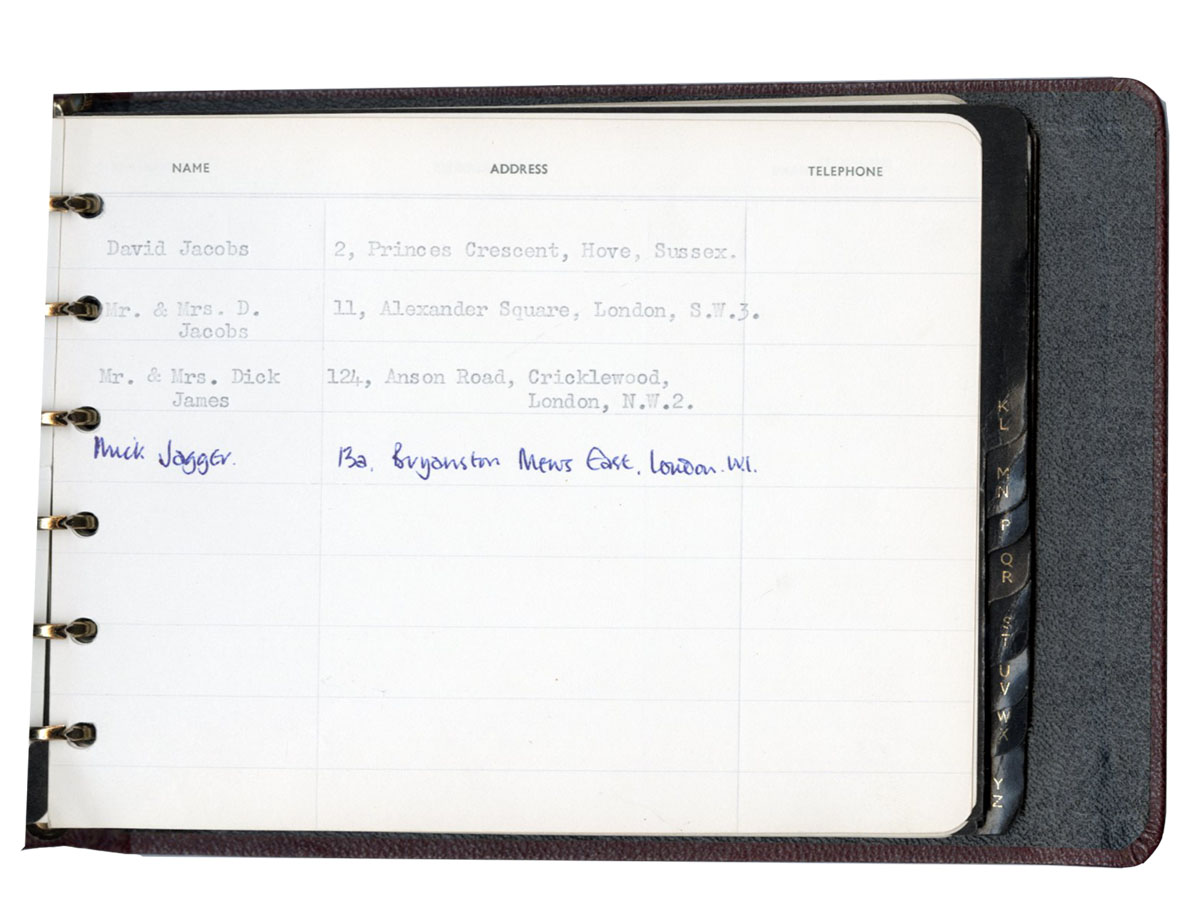 NAME ADDRESS TELEPHONE
David Jacobs 2, Princes Crescent, Hove, Sussex.
Mr. & Mrs. D. 11, Alexander Square, London, S.W.3.
Jacobs
Mr. & Mrs. Dick 124, Anson Road, Cricklewood,
James London, N.W.2.
Mick Jagger. 13a, Bryanston Mews East, London. W1.
K
L
M
N
P
Q
R
S
T
U
V
W
X
Y
Z